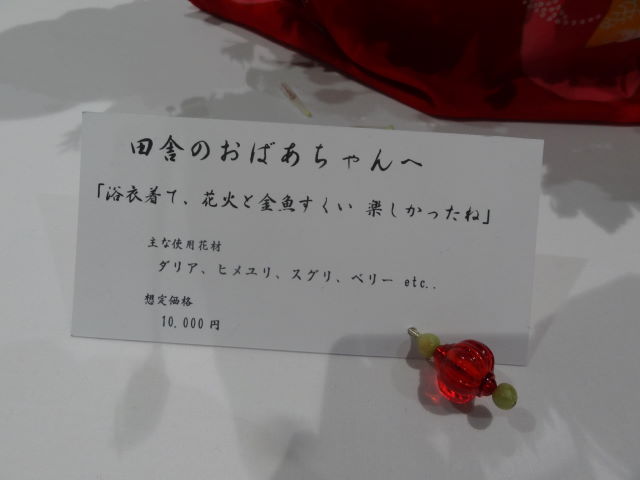 田舎のおばあちゃんへ
「浴衣着て、花火と金魚すくい 楽しかったね」
主な使用花材
ダリア、ヒメユリ、スグリ、ベリー etc..
想定価格
10,000円